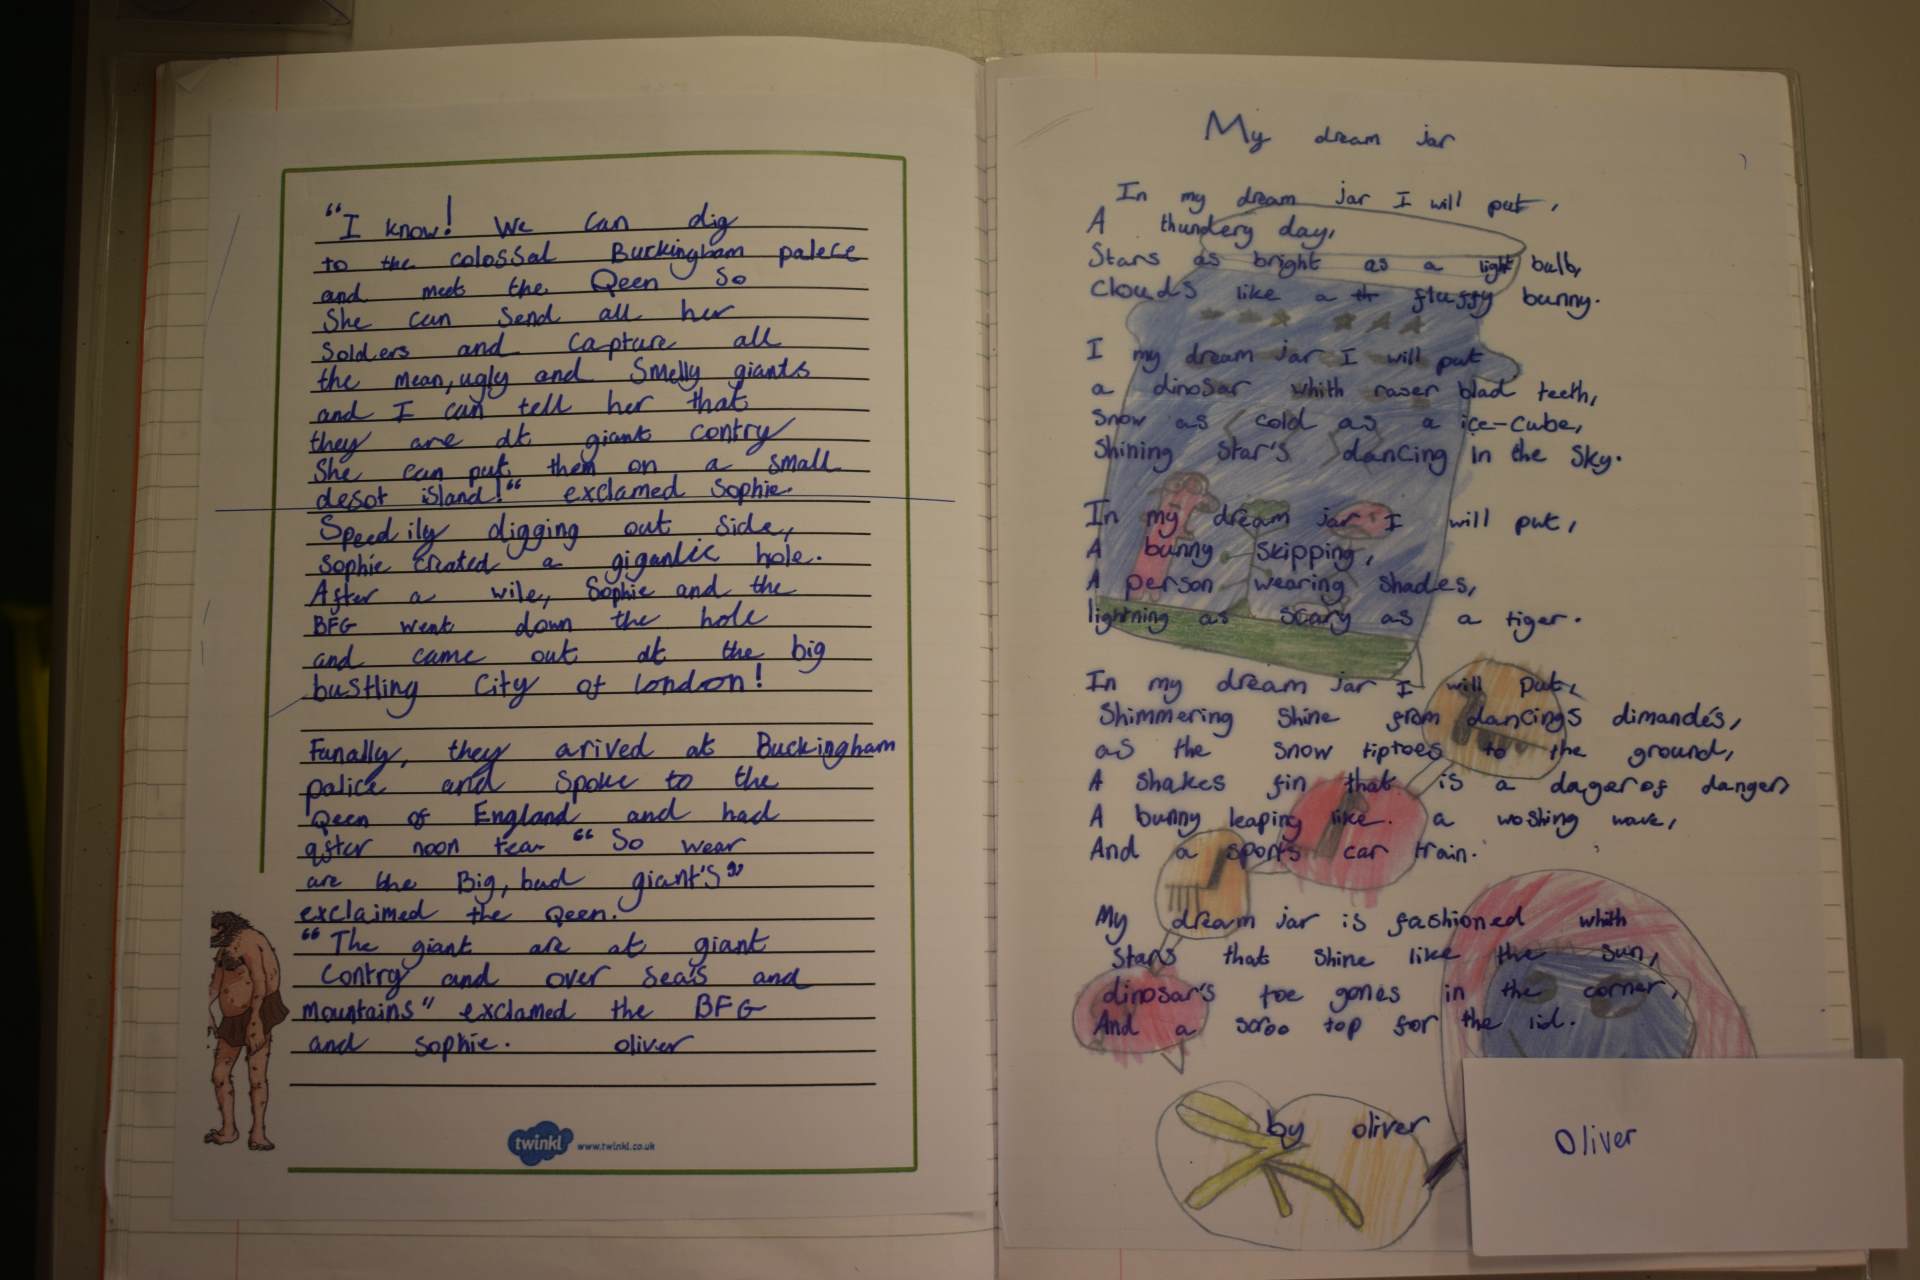 "I know! We can dig
to the colossal Buckingham palece
and meet the Qeen So
She can Send all her
Soldiers and Capture all
the mean, ugly and Smelly giants
and I can tell her that
they are at giant contry
She can put them on a small
desot island!" exclamed Sophie.
Speedily digging out side,
Sophie created a gigantic hole.
After a wile, Sophie and the
BFG went down the hole
and came out at the big
bustling City of London!
Funally, they arived at Buckingham
palice and Spoke to the
Qeen of England and had
after noon tea. "So wear
are the Big, bad giant's"
exclaimed the Qeen.
"The giant are at giant
Contry and over Sea's and
mountains" exclamed the BFG
and Sophie. oliver
twinkl www.twinkl.co.uk
My dream jar
In my dream jar I will put,
A thundery day,
Stars as bright as a light bulb,
Clouds like a th fluffy bunny.
I my dream jar I will put
a dinosar whith raser blad teeth,
Snow as cold as a ice-cube,
Shining Star's dancing In the Sky.
In my dream jar I will put,
A bunny skipping,
A person wearing Shades,
lightning as scary as a tiger.
In my dream jar I will put,
Shimmering Shine from dancings dimandes,
as the snow tiptoes to the ground,
A Shakes fin that is a dager of danger,
A bunny leaping like a woshing wave,
And a sports car train.
My dream jar is fashioned whith
Stars that Shine like the sun,
dinosar's toe gones in the corner,
And a scroo top for the lid.
by oliver
Oliver